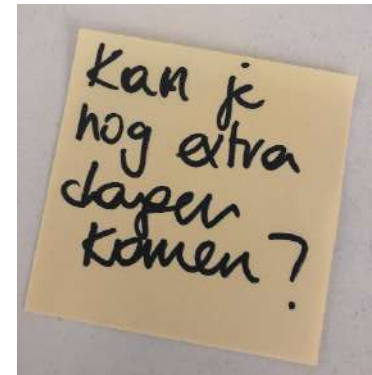 Kan je
nog extra
dagen
komen?